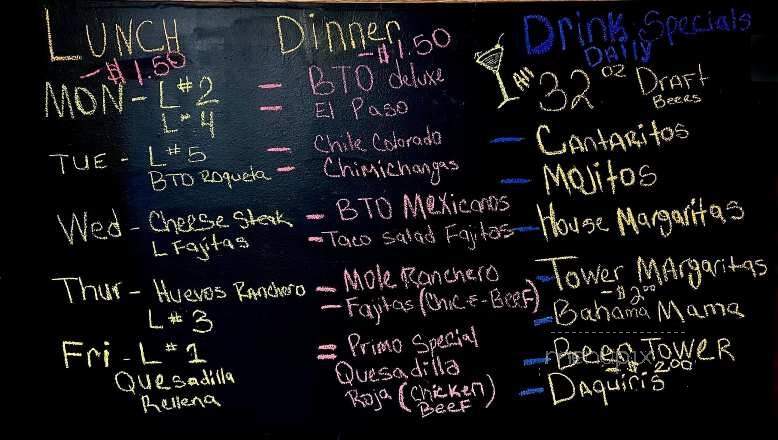 LUNCH
-$1.50
MON - L#2
L#4
TUE - L#5
BTO Roqueta
Wed - Cheese Steak
L Fajitas
Thur - Huevos Ranchero
L#3
Fri - L#1
Quesadilla
Rellena
Dinner
-$1.50
- BTO deluxe
- El Paso
- Chile Colorado
- Chimichangas
- BTO Mexicanos
- Taco Salad Fajitas
- Mole Ranchero
- Fajitas (Chic-E-Beef)
= Primo Special
Quesadilla
Roja (Chicken
Beef)
Drink Specials
Daily
All 32 oz Draft
Beers
- Cantaritos
- Mojitos
- House Margaritas
- Tower Margaritas
-$2.00
- Bahama Mama
- Beer Tower
-$2.00
- Daquiris